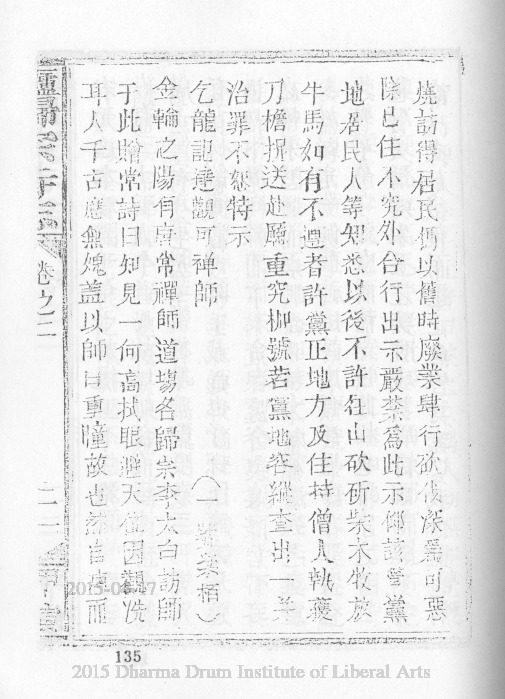 燒訪得居民仍以舊時廢業肆行砍伐深爲可惡
除已往不究外合行出示嚴禁爲此示仰該營黨
地居民人等知悉以後不許在山砍斫柴木牧放
牛馬如有不遵者許黨正地方及住持僧人執獲
刀檐扭送赴廳重究枷號若黨地容縱查出一并
治罪不恕特示
乞龍記達觀可禪師
金輪之陽有唐常禪師道場名歸宗李太白訪師
于此贈常詩曰知見一何高拭眼避天位因觀洗
耳人千古應無媿蓋以師目重瞳故也
卷之三
135
2015-04-17
2015 Dharma Drum Institute of Liberal Arts